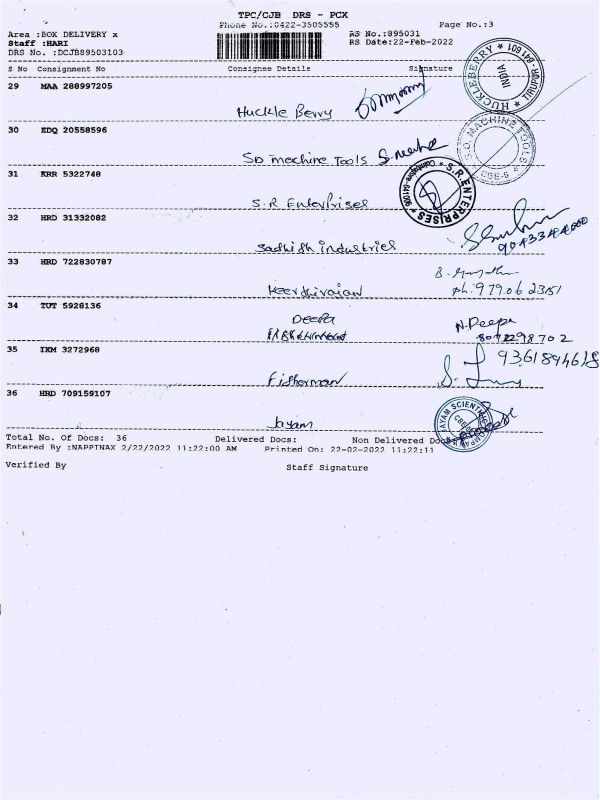 TPC/CJB DRS - PCX
Phone No.:0422-3505555 Page No.:3
Area :BOX DELIVERY x RS No.:895031
Staff :HARI RS Date:22-Feb-2022
DRS No. :DCJB89503103
S No Consignment No Consignee Details Signature
29 MAA 288997205
Huckle Berry
HUCKLEBERRY * TIRUPUR - 641 601 * INDIA
30 EDQ 20558596
SD machine Tools
S.D. MACHINE TOOLS
31 KRR 5322748
S.R Enterprises
* S.R. ENTERPRISES *
32 HRD 31332082
Sadhish industries
33 HRD 722830787
Keerthivajan
Ph: 97906 23151
34 TUT 5928136
DEEPA
N. Deepa
35 IXM 3272968
Fisherman
9361894618
36 HRD 709159107
Jayam
JAYAM SCIENTIFIC
Total No. Of Docs: 36 Delivered Docs: Non Delivered Docs
Entered By :NAPPINAX 2/22/2022 11:22:00 AM Printed On: 22-02-2022 11:22:11
Verified By Staff Signature